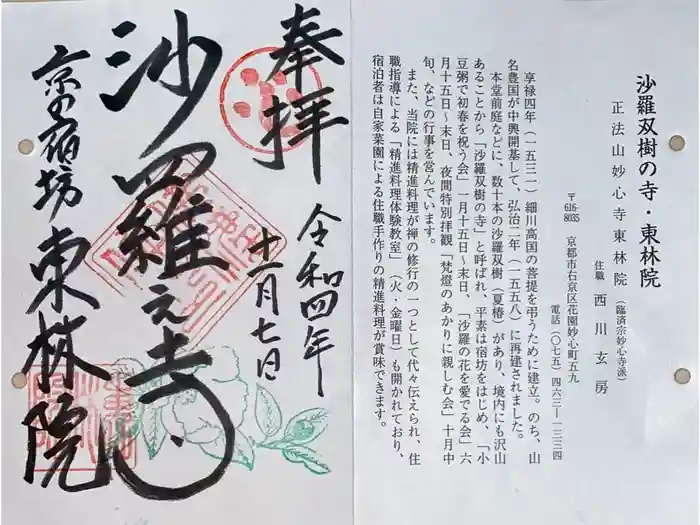 沙羅双樹の寺・東林院
正法山妙心寺東林院(臨済宗妙心寺派)
住職 西川玄房
〒616-8035 京都市右京区花園妙心町五九
電話(〇七五)四六三ー一三三四
享禄四年(一五三一)細川高国の菩提を弔うために建立。のち、山
名豊国が中興開基して、弘治二年(一五五八)に再建されました。
本堂前庭などに、数十本の沙羅双樹(夏椿)があり、境内にも沢山
あることから「沙羅双樹の寺」と呼ばれ、平素は宿坊をはじめ、「小
豆粥で初春を祝う会」一月十五日~末日、「沙羅の花を愛でる会」六
月十五日~末日、夜間特別拝観「梵燈のあかりに親しむ会」十月中
旬、などの行事を営んでいます。
また、当院には精進料理が禅の修行の一つとして代々伝えられ、住
職指導による「精進料理体験教室」(火・金曜日)も開かれており、
宿泊者は自家菜園による住職手作りの精進料理が賞味できます。
奉拝
令和四年
十一月七日
沙羅之寺
京の宿坊 東林院